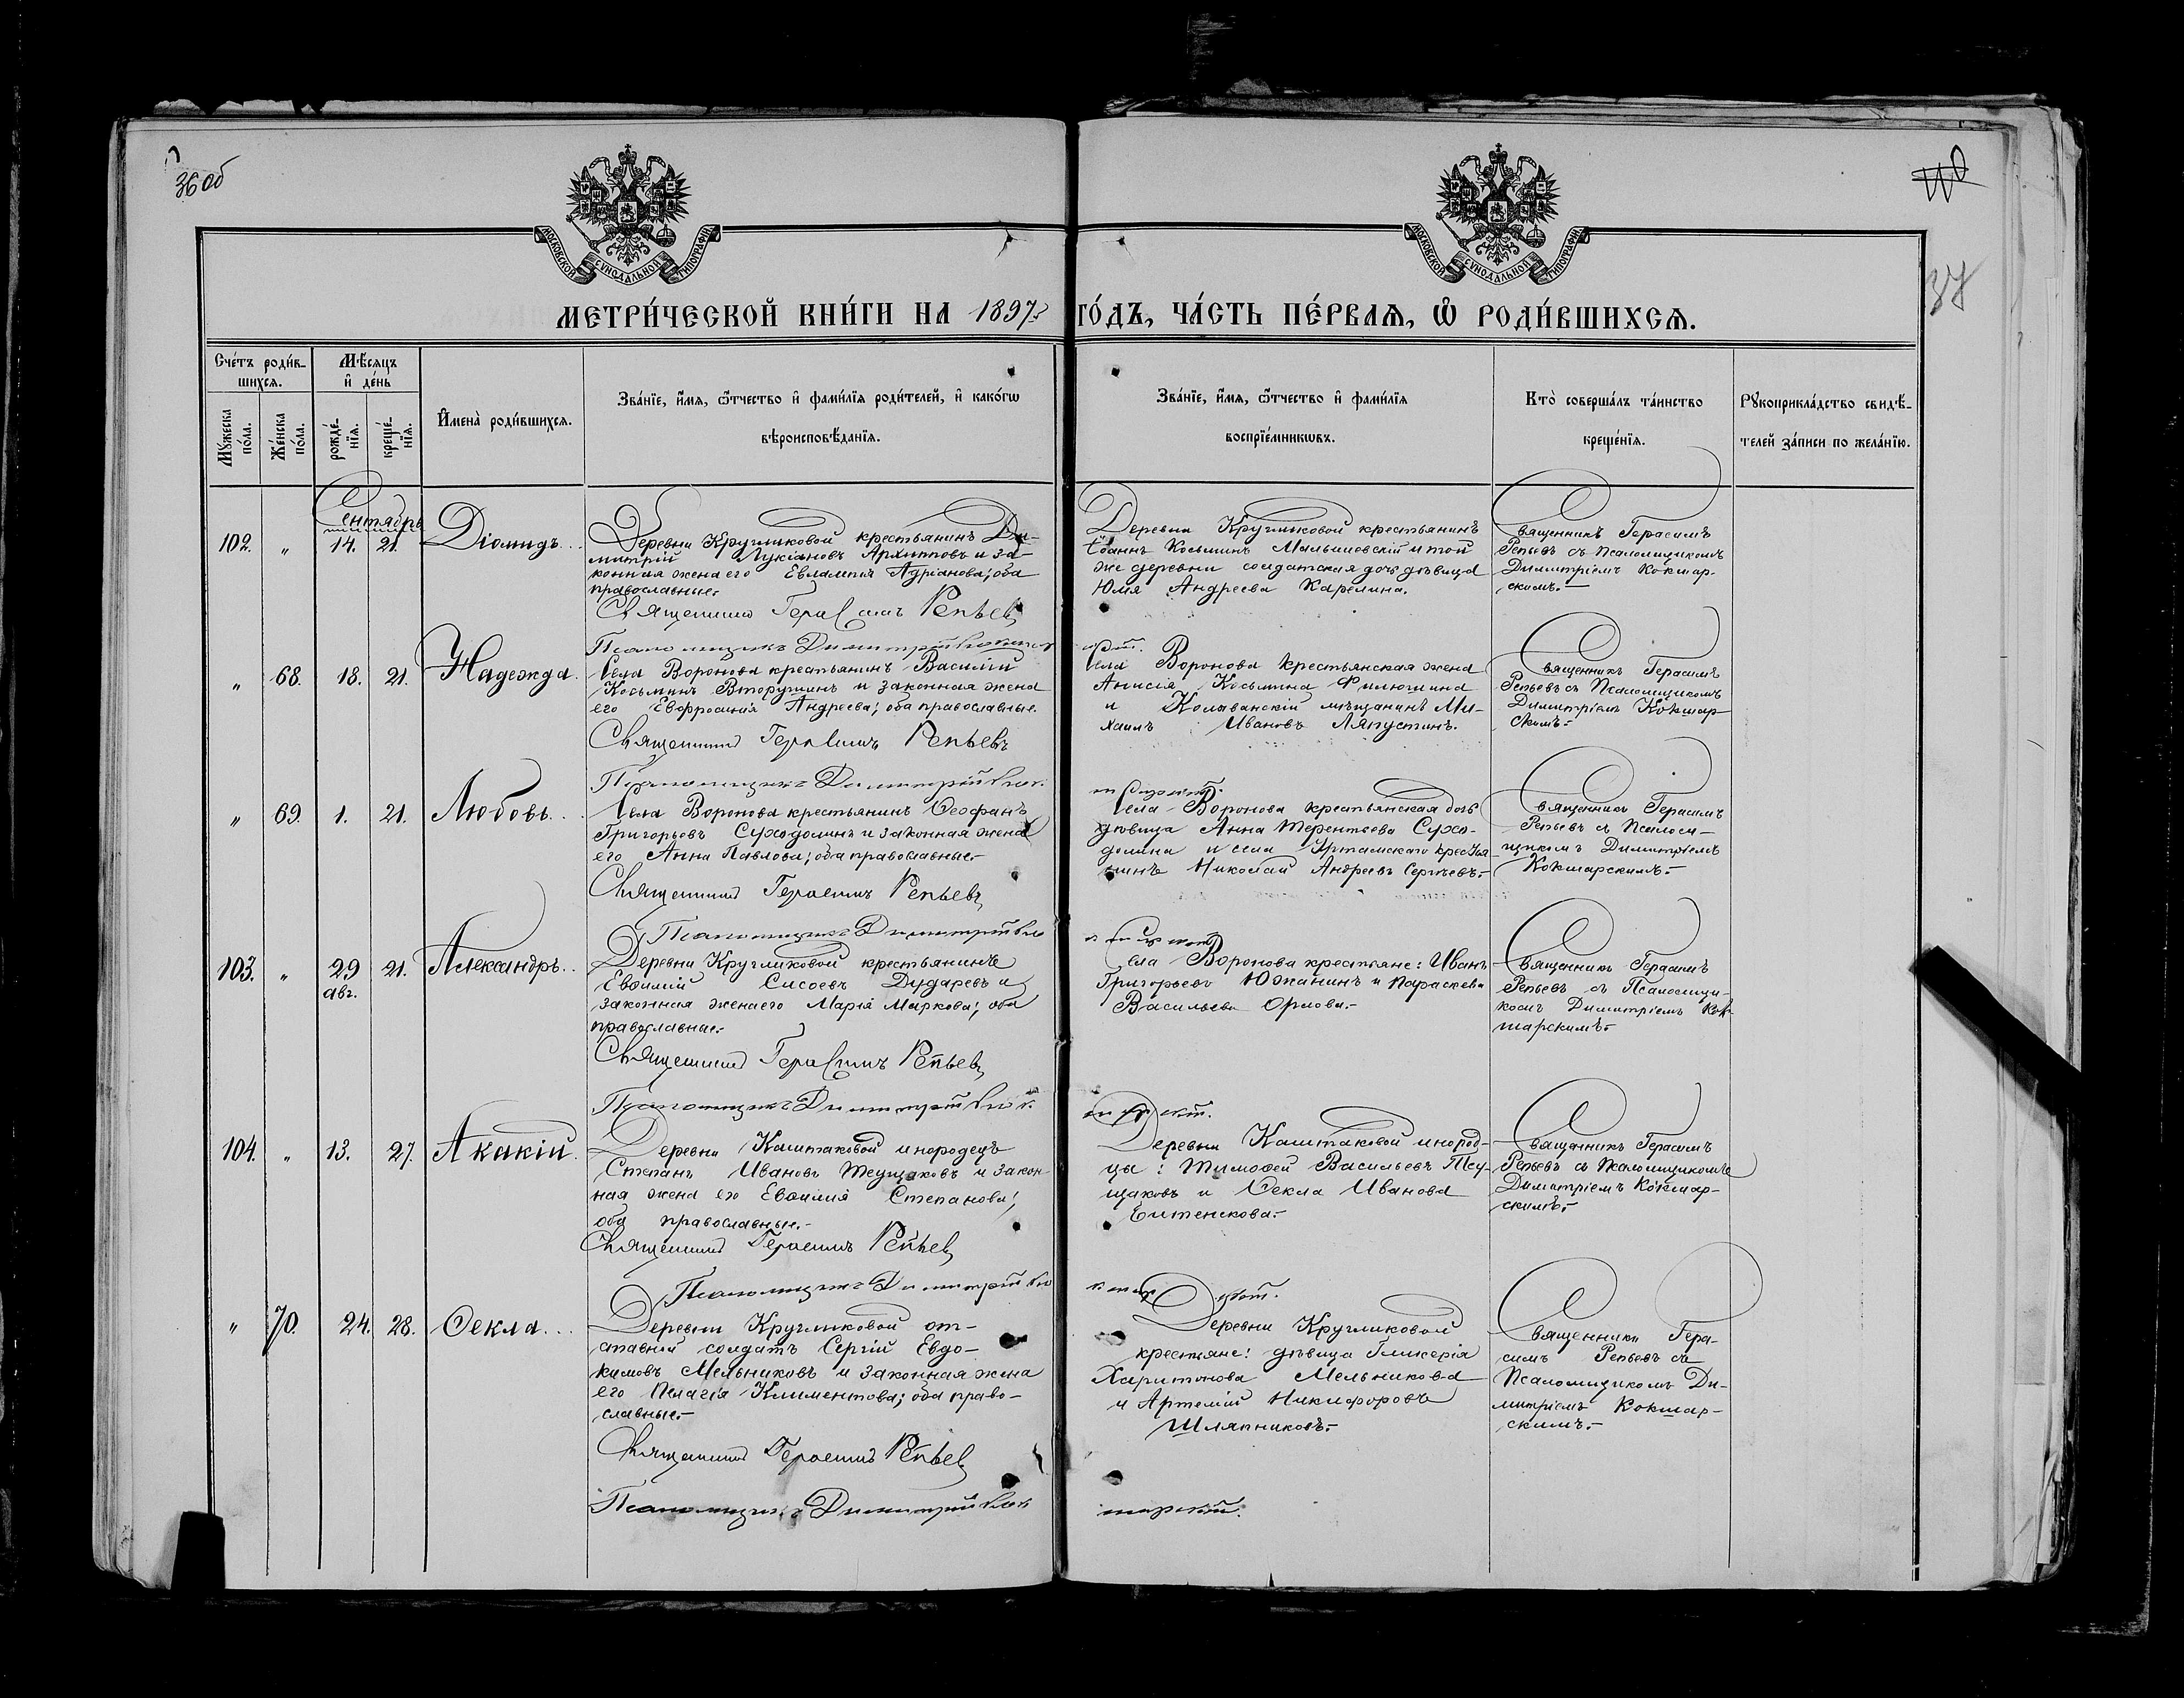 36 об
МОСКОВСКОЙ СѴНОДАЛЬНОЙ ТИПОГРАФІИ
МОСКОВСКОЙ СѴНОДАЛЬНОЙ ТИПОГРАФІИ
37
МЕТРИ́ЧЕСКОЙ КНИ́ГИ НА 1897 ГО́ДЪ, ЧА́СТЬ ПЕ́РВАѦ, Ѡ҆ РОДИ́ВШИХСѦ.
Сче́тъ роди́в-
шихсѧ.
Мꙋжеска по́ла.
Же́нска по́ла.
Мѣ́сѧцъ
и҆ де́нь
рожде́-
нїѧ.
креще́-
нїѧ.
И҆мена̀ роди́вшихсѧ.
Зва́нїе, и҆́мѧ, ѻ҆́тчество и҆ фами́лїѧ роди́телей, и҆ како́гѡ
вѣроисповѣ́данїѧ.
Зва́нїе, и҆́мѧ, ѻ҆́тчество и҆ фами́лїѧ
воспрїе́мникѡвъ.
Кто̀ соверша́лъ та́инство
креще́нїѧ.
Рꙋкоприкла́дство свидѣ́-
телей за́писи по жела́нїю.
Сентябрь
102. " 14. 21. Діомидъ.
Деревни Кругликовой крестьянинъ Ди-
митрій Лукіановъ Архиповъ и за-
конная жена его Евлампія Адріанова; оба
православные.
Священникъ Герасимъ Репьевъ
Псаломщикъ Димитрій Кокшарскій.
Деревни Кругликовой крестьянинъ
Іоаннъ Косьминъ Малышевскій и той
же деревни солдатская дочь дѣвица
Юлія Андреева Карелина.
Священникъ Герасимъ
Репьевъ съ Псаломщикомъ
Димитріемъ Кокшар-
скимъ.
" 68. 18. 21. Надежда.
Села Воронова крестьянинъ Василій
Косьминъ Вторушинъ и законная жена
его Евфросинія Андреева; оба православные.
Священникъ Герасимъ Репьевъ
Псаломщикъ Димитрій Кокшарскій.
Села Воронова крестьянская жена
Анисія Косьмина Филюшина
и Колыванскій мѣщанинъ Ми-
хаилъ Ивановъ Ляпустинъ.
Священникъ Герасимъ
Репьевъ съ Псаломщикомъ
Димитріемъ Кокшар-
скимъ.
" 69. 1. 21. Любовь.
Села Воронова крестьянинъ Ѳеофанъ
Григорьевъ Суходолинъ и законная жена
его Анна Павлова; оба православные.
Священникъ Герасимъ Репьевъ
Псаломщикъ Димитрій Кокшарскій
Села Воронова крестьянская дочь
дѣвица Анна Терентьева Сухо-
долина и села Иртамскаго кресьтья-
нинъ Николай Андреевъ Сергѣевъ.
Священникъ Герасимъ
Репьевъ съ Псалом-
щикомъ Димитріемъ
Кокшарскимъ.
103. " 29 авг. 21. Александръ.
Деревни Кругликовой крестьянинъ
Евѳимій Сысоевъ Дударевъ и
законная жена его Марія Маркова; оба
православные.
Священникъ Герасимъ Репьевъ
Псаломщикъ Димитрій Кокшарскій.
Села Воронова крестьяне: Иванъ
Григорьевъ Южанинъ и Параскева
Васильева Орлова.
Священникъ Герасимъ
Репьевъ съ Псаломщи-
комъ Димитріемъ Кок-
шарскимъ.
104. " 13. 27. Акакій.
Деревни Каштаковой инородецъ
Степанъ Ивановъ Теущаковъ и закон
ная жена его Евѳимія Степанова;
оба православные.
Священникъ Герасимъ Репьевъ
Псаломщикъ Димитрій Кокшарскій.
Деревни Каштаковой инород-
цы: Тимоѳей Васильевъ Теу-
щаковъ и Ѳекла Иванова
Священникъ Герасимъ
Репьевъ съ Псаломщикомъ
Димитріемъ Кокшар-
скимъ.
" 70. 24. 28. Ѳекла.
Деревни Кругликовой от-
ставной солдатъ Сергій Евдо-
кимовъ Мельниковъ и законная жена
его Пелагія Климентова; оба право-
славные.
Священникъ Герасимъ Репьевъ
Псаломщикъ Димитрій Кокшарскій.
Деревни Кругликовой
крестьяне: дѣвица Гликерія
Харитонова Мельникова
и Артемій Никифоровъ
Шляпниковъ.
Священникъ Гера-
симъ Репьевъ съ
Псаломщикомъ Ди-
митріемъ Кокшар-
скимъ.